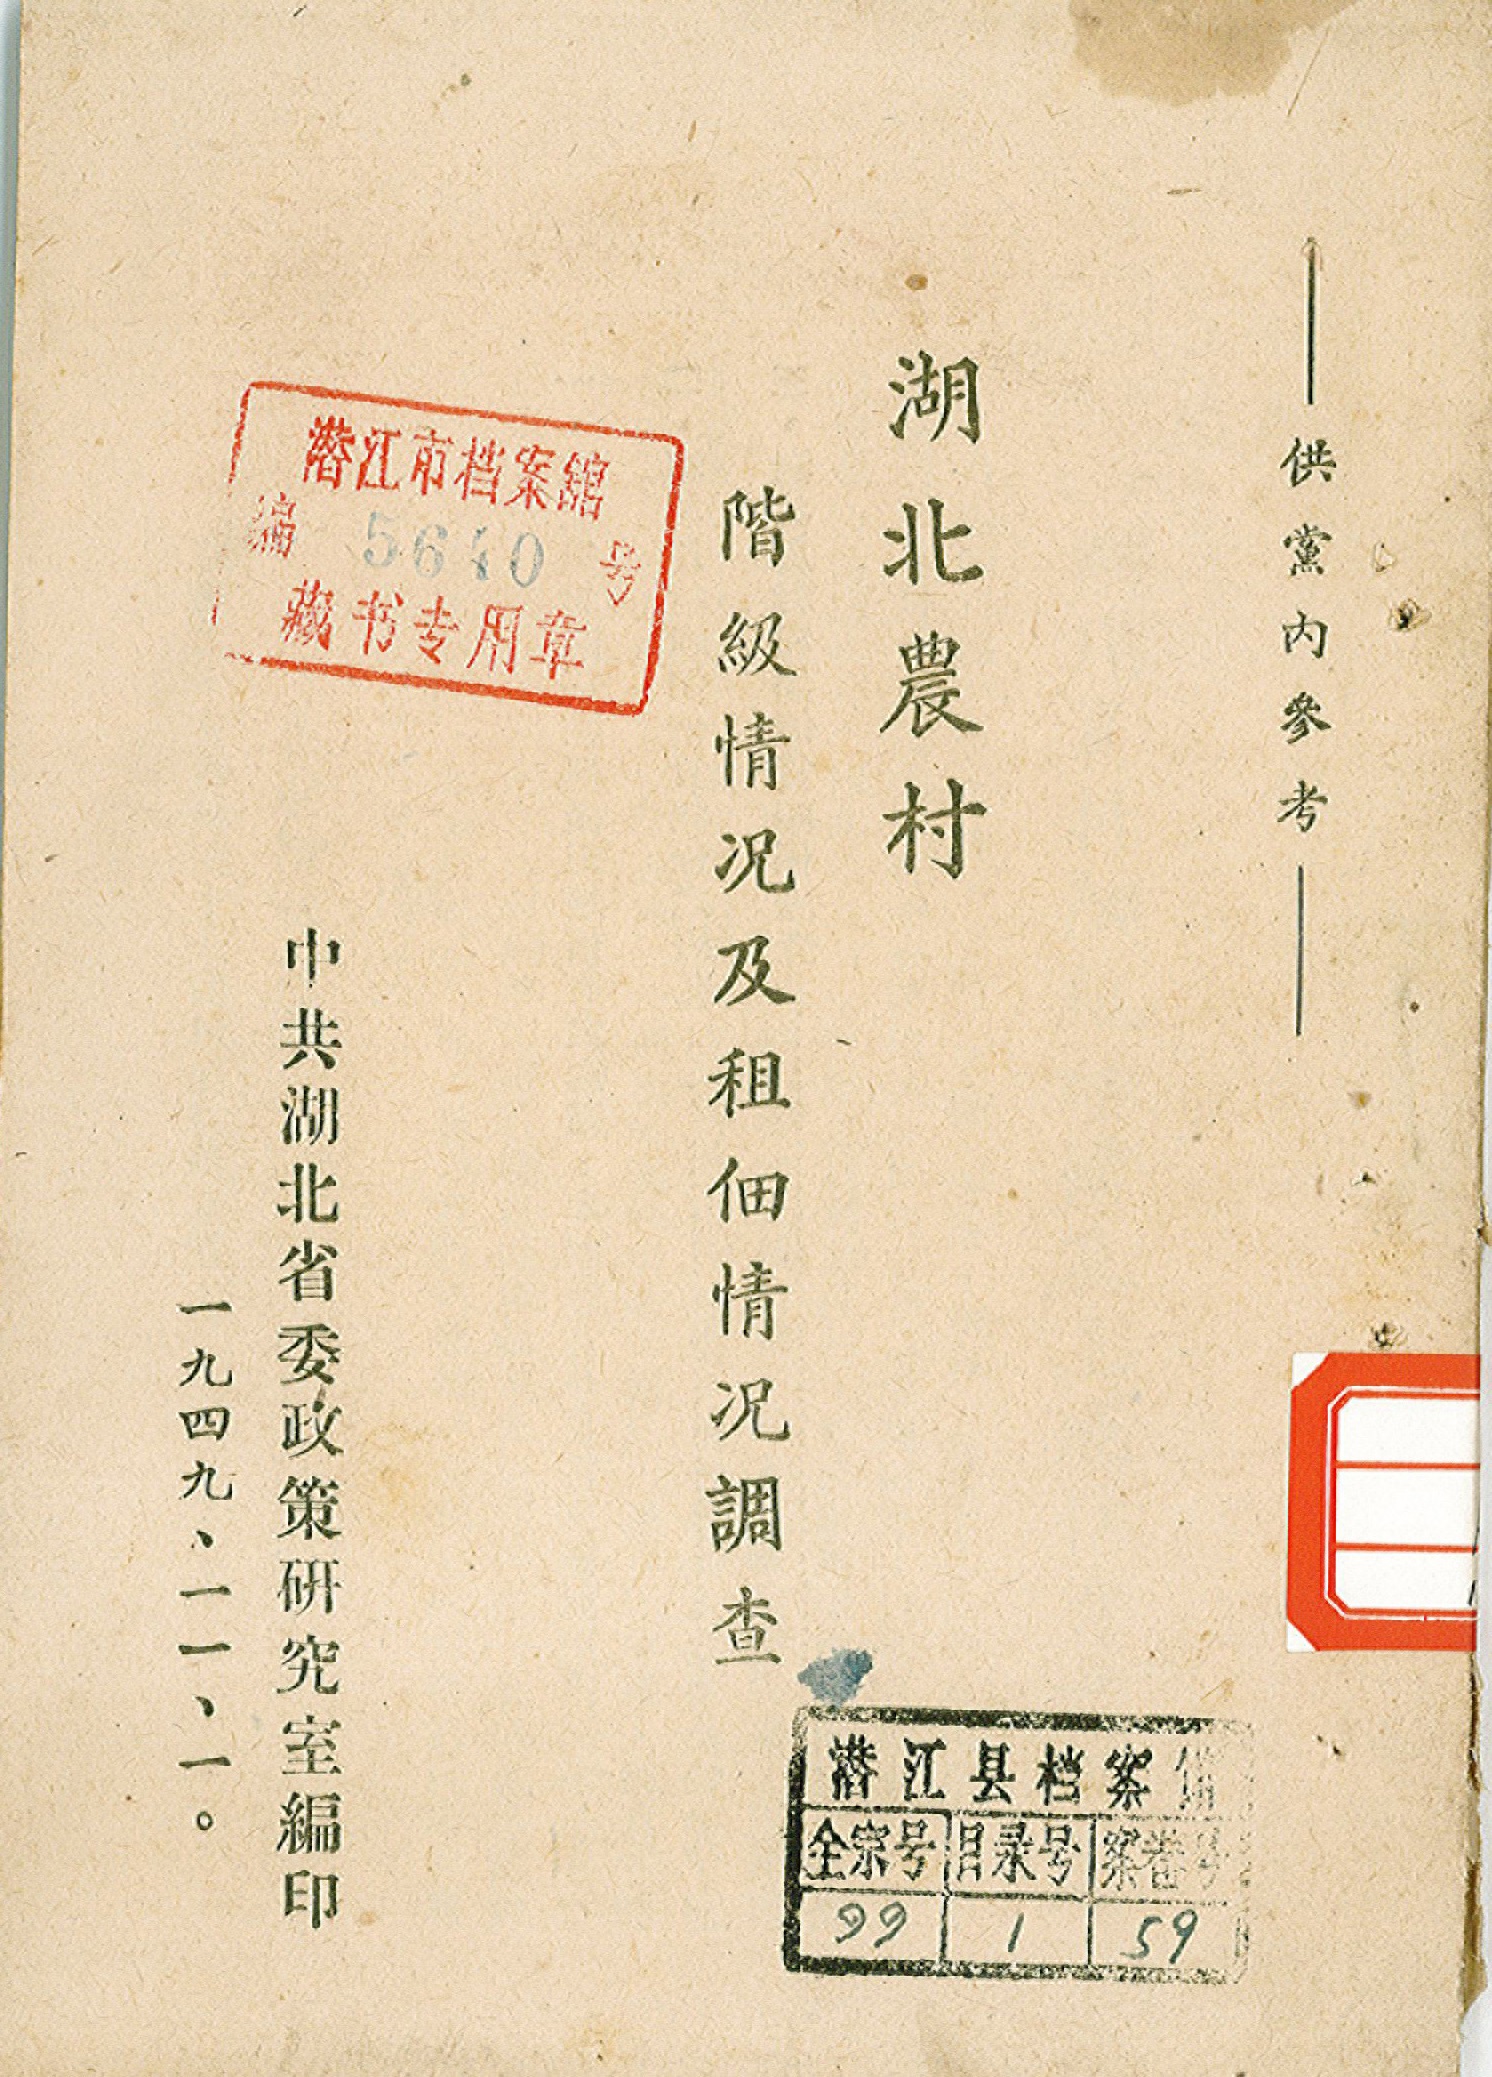 ——供黨內參考——
湖北農村
階級情况及租佃情况調查
中共湖北省委政策研究室編印
一九四九、一一、一。
潜江市档案館
编 5640 号
藏书专用章
潜江县档案馆
全宗号 目录号 案卷号
99 1 59